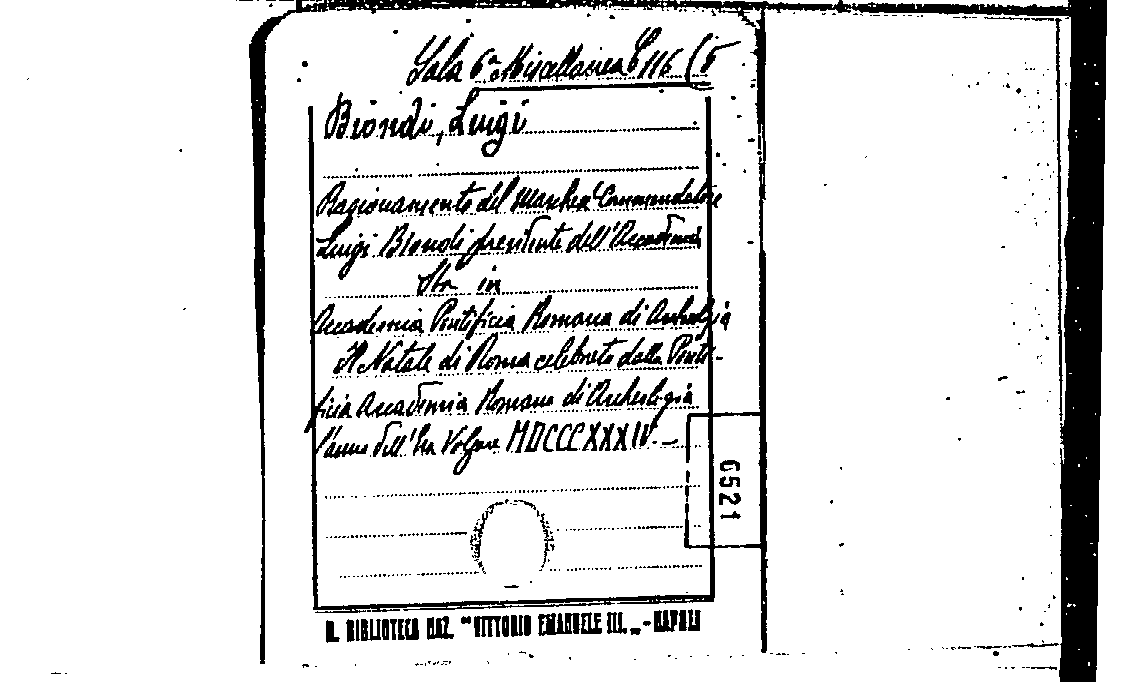 Sala 6ª Miscellanea C 116 (5
Biondi, Luigi
Ragionamento del Marchese Commendatore
Luigi Biondi presidente dell'Accademia
Sta in
Accademia Pontificia Romana di Archeologia
Il Natale di Roma celebrato dalla Ponti-
ficia Accademia Romana di Archeologia
l'anno dell'Era Volgare MDCCCXXXIV.—
6521
R. BIBLIOTECA NAZ. "VITTORIO EMANUELE III." - NAPOLI